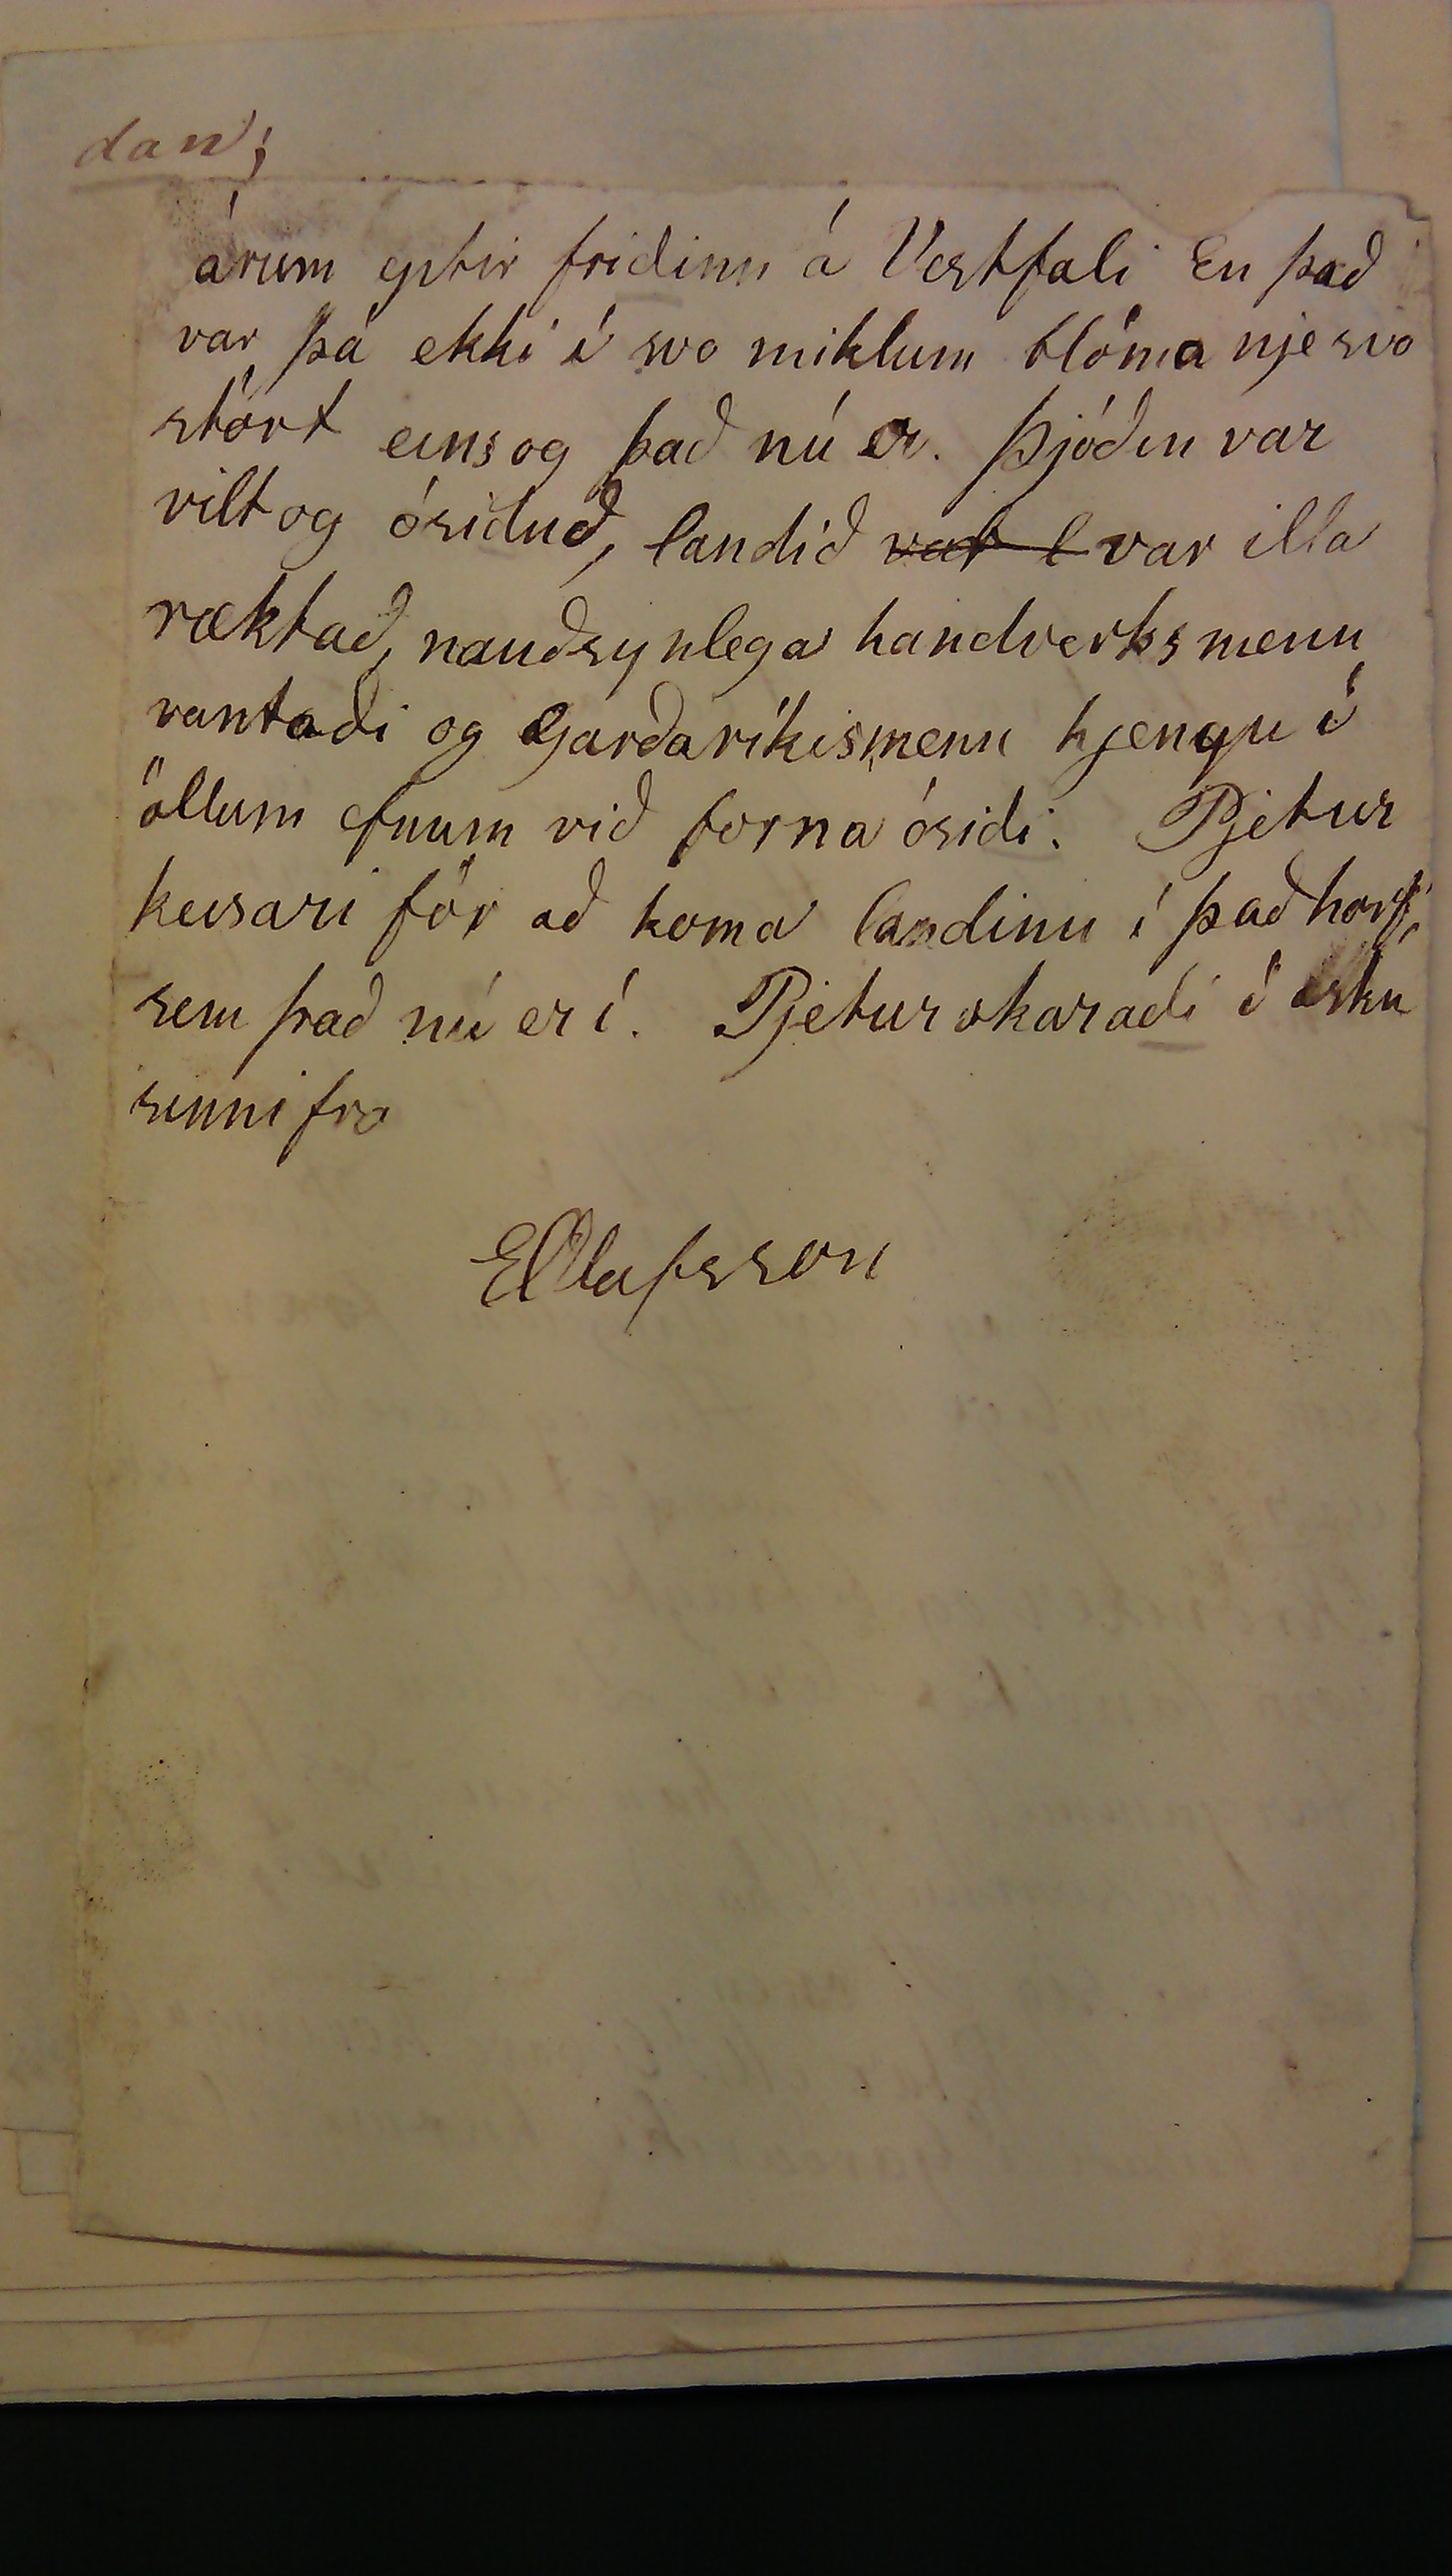 dan;
árum eptir fridinn á Vestfali En það
var þá ekki í svo miklum blóma nje svo
stórt eins og það nú er. Þjóðin var
vilt og ósiduð, landið var l var illa
ræktað, nauðsynlega handverksmenn
vantaði og Garðaríkismenn hjengu í
öllum efnum við forna ósidi. Pjetur
keisari fór að koma landinu í það horf,
sem það nú er í. Pjetur skaradi í æsku
sinni fra
EOlafsson